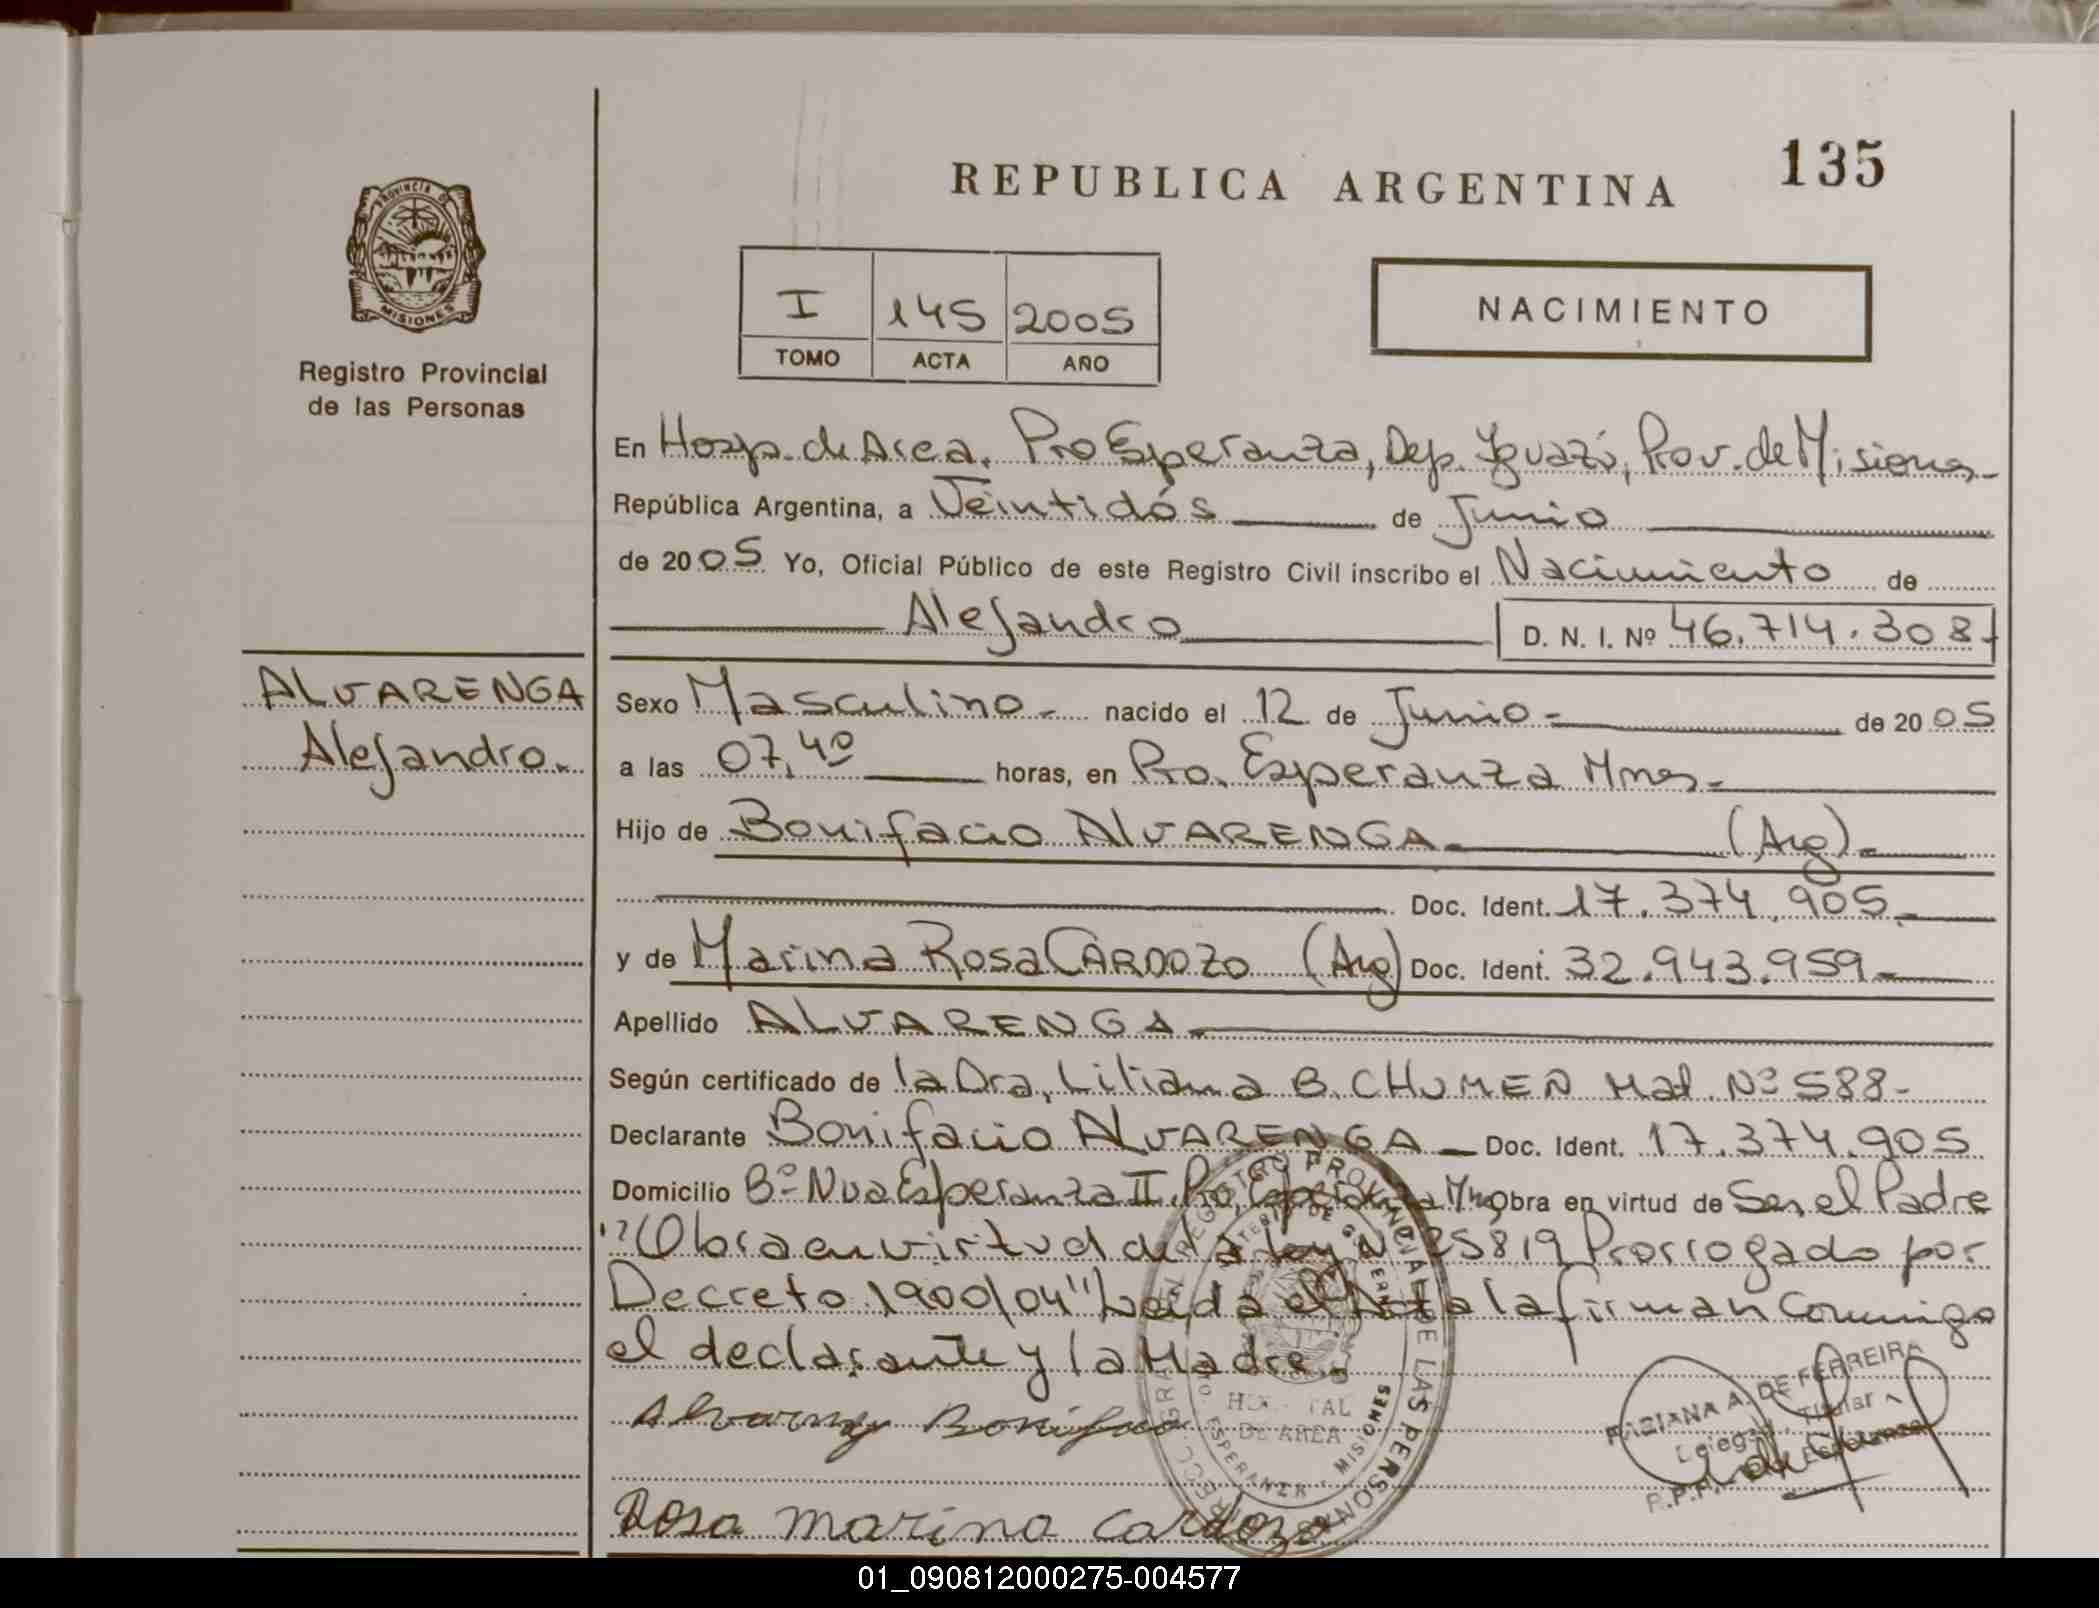 REPUBLICA ARGENTINA
135
PROVINCIA DE
MISIONES
Registro Provincial
de las Personas
I 145 2005
TOMO ACTA AÑO
NACIMIENTO
En Hosp. de Area. Pto Esperanza, Dep. Iguazú, Prov. de Misiones-
República Argentina, a Veintidós de Junio
de 2005 Yo, Oficial Público de este Registro Civil inscribo el Nacimiento de
Alejandro D. N. I. Nº 46.714.308
ALVARENGA
Alejandro.
Sexo Masculino- nacido el 12 de Junio- de 2005
a las 07,40 horas, en Pto. Esperanza Mnes-
Hijo de Bonifacio ALVARENGA- (Arg)-
Doc. Ident. 17.374.905-
y de Marina Rosa CARDOZO (Arg) Doc. Ident. 32.943.959-
Apellido ALVARENGA-
Según certificado de la Dra. Liliana B. CHUMEN Mat. Nº 588-
Declarante Bonifacio ALVARENGA- Doc. Ident. 17.374.905
Domicilio Bº Nva Esperanza II. Pto. Esperanza Mnes Obra en virtud de Ser el Padre
"Obra en virtud de la Ley Nº 25819 Prorrogado por
Decreto 1900/04" Leida el Acta la firman conmigo
el declarante y la Madre.
REGISTRO PROVINCIAL DE LAS PERSONAS
HOSPITAL
DE AREA
ESPERANZA - MISIONES
FABIANA A. DE FERREIRA
Titular
Rosa marina Cardozo
01_090812000275-004577